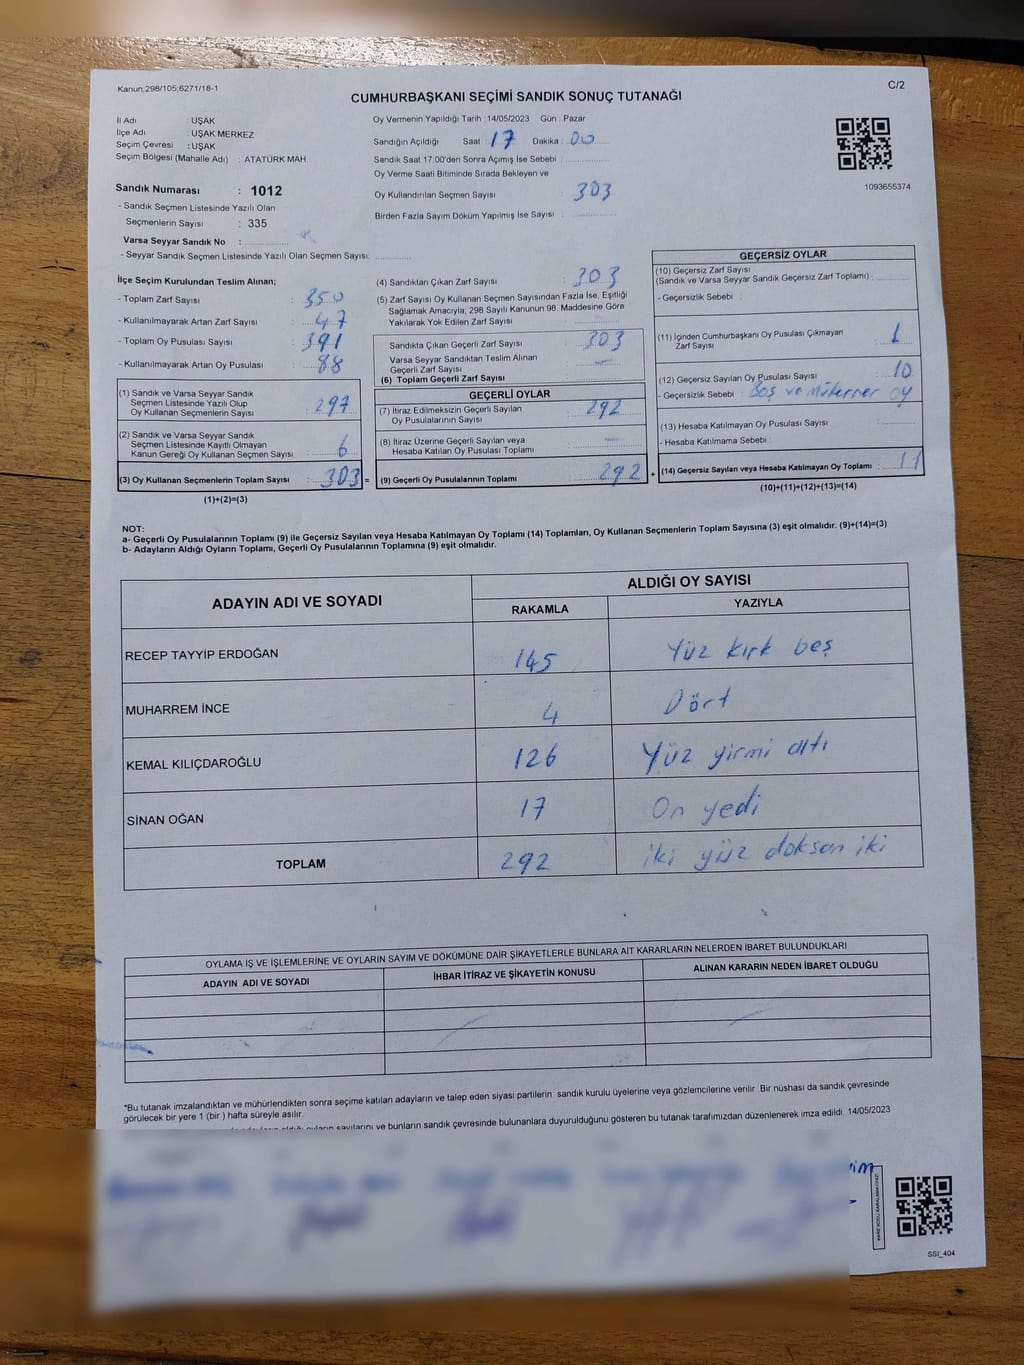 Kanun;298/105;6271/18-1
C/2
CUMHURBAŞKANI SEÇİMİ SANDIK SONUÇ TUTANAĞI
İl Adı : UŞAK
İlçe Adı : UŞAK MERKEZ
Seçim Çevresi : UŞAK
Seçim Bölgesi (Mahalle Adı) : ATATÜRK MAH
Sandık Numarası : 1012
- Sandık Seçmen Listesinde Yazılı Olan
Seçmenlerin Sayısı : 335
Varsa Seyyar Sandık No :
- Seyyar Sandık Seçmen Listesinde Yazılı Olan Seçmen Sayısı:
Oy Vermenin Yapıldığı Tarih :14/05/2023 Gün : Pazar
Sandığın Açıldığı Saat : 17 Dakika : 00
Sandık Saat 17:00'den Sonra Açımış İse Sebebi :
Oy Verme Saati Bitiminde Sırada Bekleyen ve
Oy Kullandırılan Seçmen Sayısı : 303
Birden Fazla Sayım Döküm Yapılmış İse Sayısı :
1093655374
İlçe Seçim Kurulundan Teslim Alınan;
- Toplam Zarf Sayısı : 350
- Kullanılmayarak Artan Zarf Sayısı : 47
- Toplam Oy Pusulası Sayısı : 391
- Kullanılmayarak Artan Oy Pusulası : 88
(1) Sandık ve Varsa Seyyar Sandık
Seçmen Listesinde Yazılı Olup
Oy Kullanan Seçmenlerin Sayısı : 297
(2) Sandık ve Varsa Seyyar Sandık
Seçmen Listesinde Kayıtlı Olmayan
Kanun Gereği Oy Kullanan Seçmen Sayısı : 6
(3) Oy Kullanan Seçmenlerin Toplam Sayısı : 303 =
(1)+(2)=(3)
(4) Sandıktan Çıkan Zarf Sayısı : 303
(5) Zarf Sayısı Oy Kullanan Seçmen Sayısından Fazla İse, Eşitliği
Sağlamak Amacıyla; 298 Sayılı Kanunun 98. Maddesine Göre
Yakılarak Yok Edilen Zarf Sayısı :
Sandıkta Çıkan Geçerli Zarf Sayısı : 303
Varsa Seyyar Sandıktan Teslim Alınan
Geçerli Zarf Sayısı :
(6) Toplam Geçerli Zarf Sayısı :
GEÇERLİ OYLAR
(7) İtiraz Edilmeksizin Geçerli Sayılan
Oy Pusulalarının Sayısı : 292
(8) İtiraz Üzerine Geçerli Sayılan veya
Hesaba Katılan Oy Pusulası Toplamı :
(9) Geçerli Oy Pusulalarının Toplamı : 292 +
GEÇERSİZ OYLAR
(10) Geçersiz Zarf Sayısı
(Sandık ve Varsa Seyyar Sandık Geçersiz Zarf Toplamı) :
- Geçersizlik Sebebi :
(11) İçinden Cumhurbaşkanı Oy Pusulası Çıkmayan
Zarf Sayısı : 1
(12) Geçersiz Sayılan Oy Pusulası Sayısı : 10
- Geçersizlik Sebebi : Boş ve Mükerrer oy
(13) Hesaba Katılmayan Oy Pusulası Sayısı :
- Hesaba Katılmama Sebebi :
(14) Geçersiz Sayılan veya Hesaba Katılmayan Oy Toplamı : 11
(10)+(11)+(12)+(13)=(14)
NOT:
a- Geçerli Oy Pusulalarının Toplamı (9) ile Geçersiz Sayılan veya Hesaba Katılmayan Oy Toplamı (14) Toplamları, Oy Kullanan Seçmenlerin Toplam Sayısına (3) eşit olmalıdır. (9)+(14)=(3)
b- Adayların Aldığı Oyların Toplamı, Geçerli Oy Pusulalarının Toplamına (9) eşit olmalıdır.
ADAYIN ADI VE SOYADI
ALDIĞI OY SAYISI
RAKAMLA YAZIYLA
RECEP TAYYİP ERDOĞAN 145 Yüz kırk beş
MUHARREM İNCE 4 Dört
KEMAL KILIÇDAROĞLU 126 Yüz yirmi altı
SİNAN OĞAN 17 On yedi
TOPLAM 292 iki yüz doksan iki
OYLAMA İŞ VE İŞLEMLERİNE VE OYLARIN SAYIM VE DÖKÜMÜNE DAİR ŞİKAYETLERLE BUNLARA AİT KARARLARIN NELERDEN İBARET BULUNDUKLARI
ADAYIN ADI VE SOYADI İHBAR İTİRAZ VE ŞİKAYETİN KONUSU ALINAN KARARIN NEDEN İBARET OLDUĞU
*Bu tutanak imzalandıktan ve mühürlendikten sonra seçime katılan adayların ve talep eden siyasi partilerin sandık kurulu üyelerine veya gözlemcilerine verilir. Bir nüshası da sandık çevresinde
görülecek bir yere 1 (bir ) hafta süreyle asılır.
oyların sayılarını ve bunların sandık çevresinde bulunanlara duyurulduğunu gösteren bu tutanak tarafımızdan düzenlenerek imza edildi. 14/05/2023
KARE KODU KARALAMAYINIZ!
SSI_404